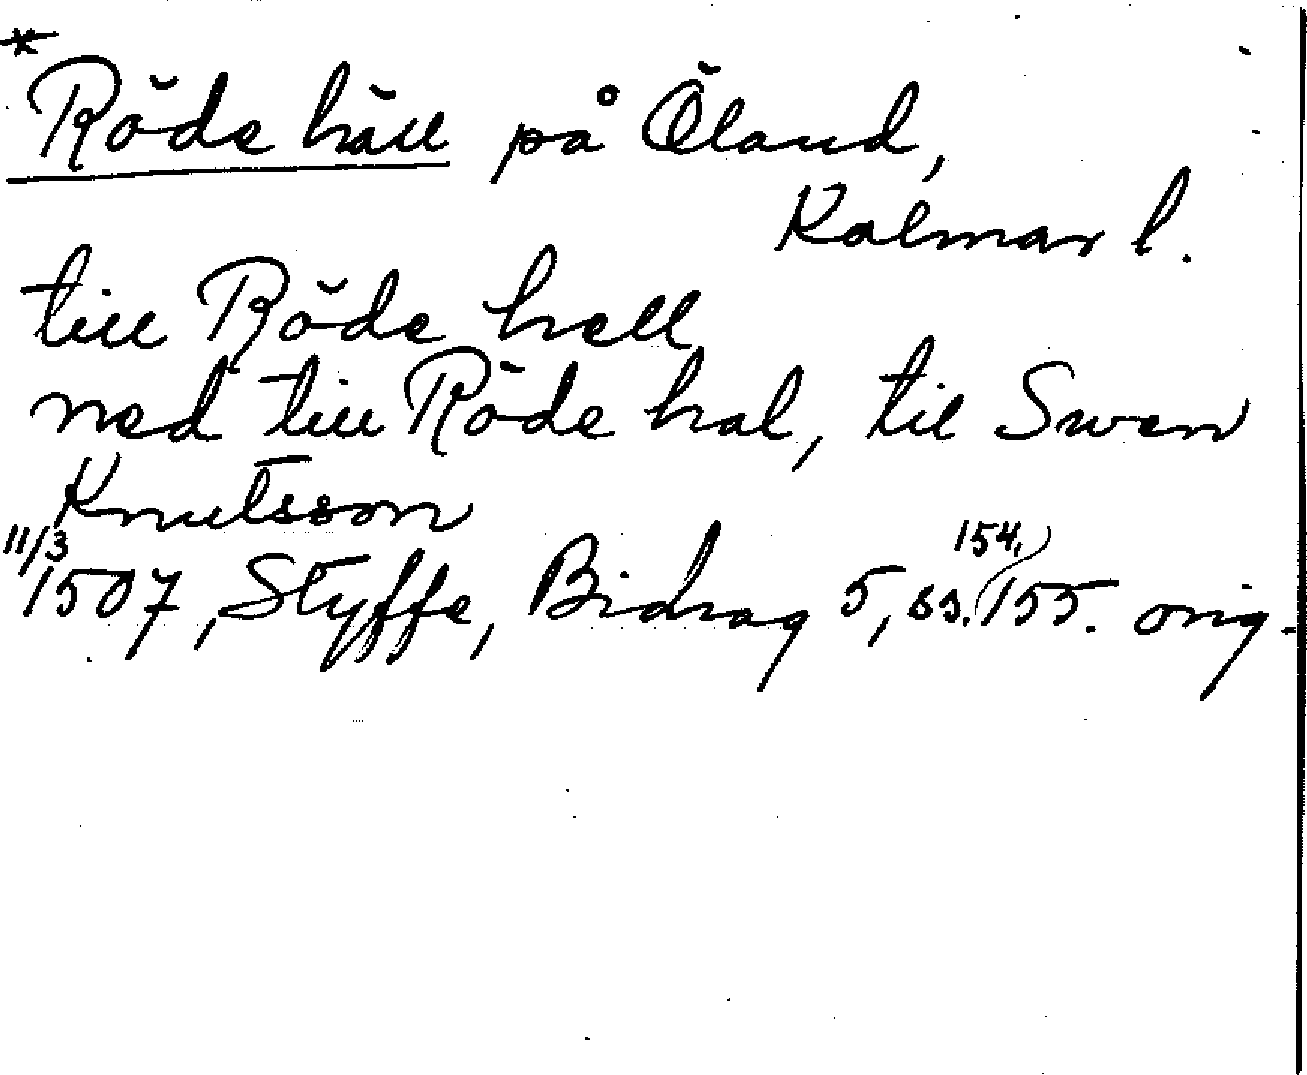 *
Röde häll på Öland,
Kalmar l.
till Röde hell
ned till Röde hal, til Swen
Knutsson
11/3
1507, Styffe, Bidrag 5, ss. 154, 155. orig.